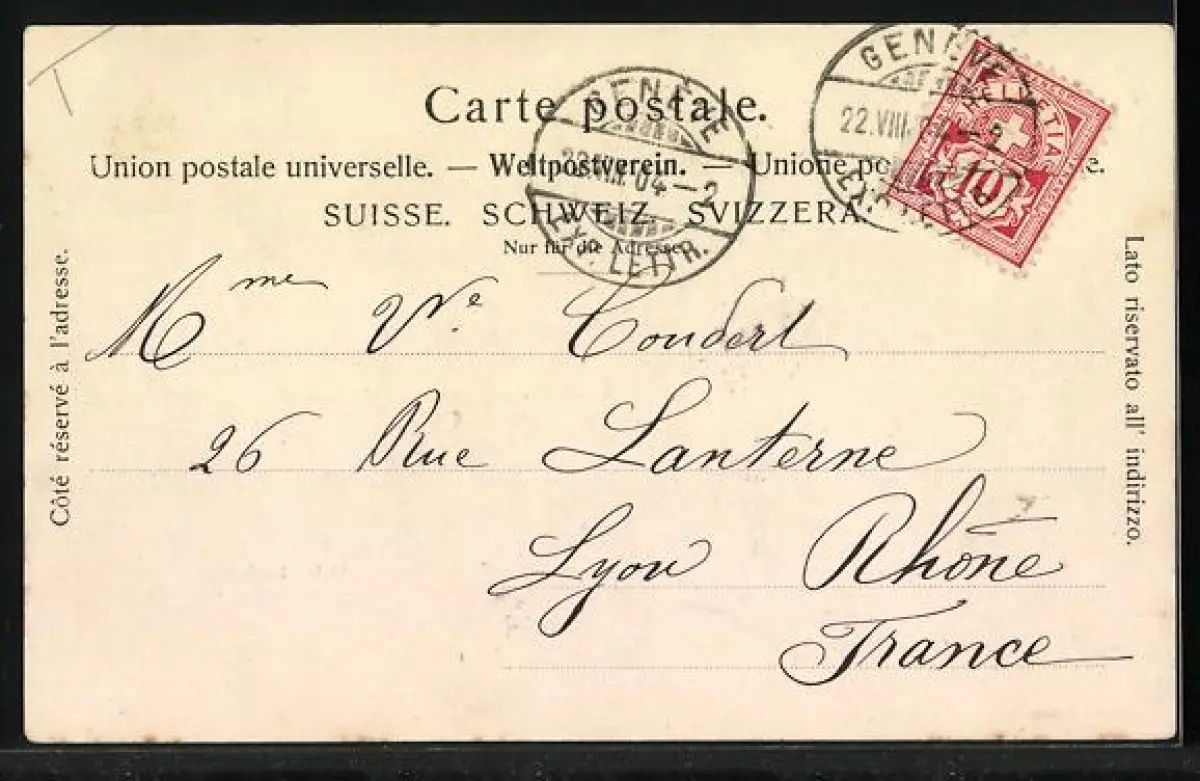 Carte postale.
Union postale universelle. — Weltpostverein. — Unione po
SUISSE. SCHWEIZ. SVIZZERA.
Nur für die Adresse.
Côté réservé à l'adresse.
Lato riservato all' indirizzo.
GENÈVE
22.VIII.04–2
EX. LETTR.
GENÈVE
22.VIII.
HELVETIA
10
Mme Ve Coudert
26 Rue Lanterne
Lyon Rhône
France